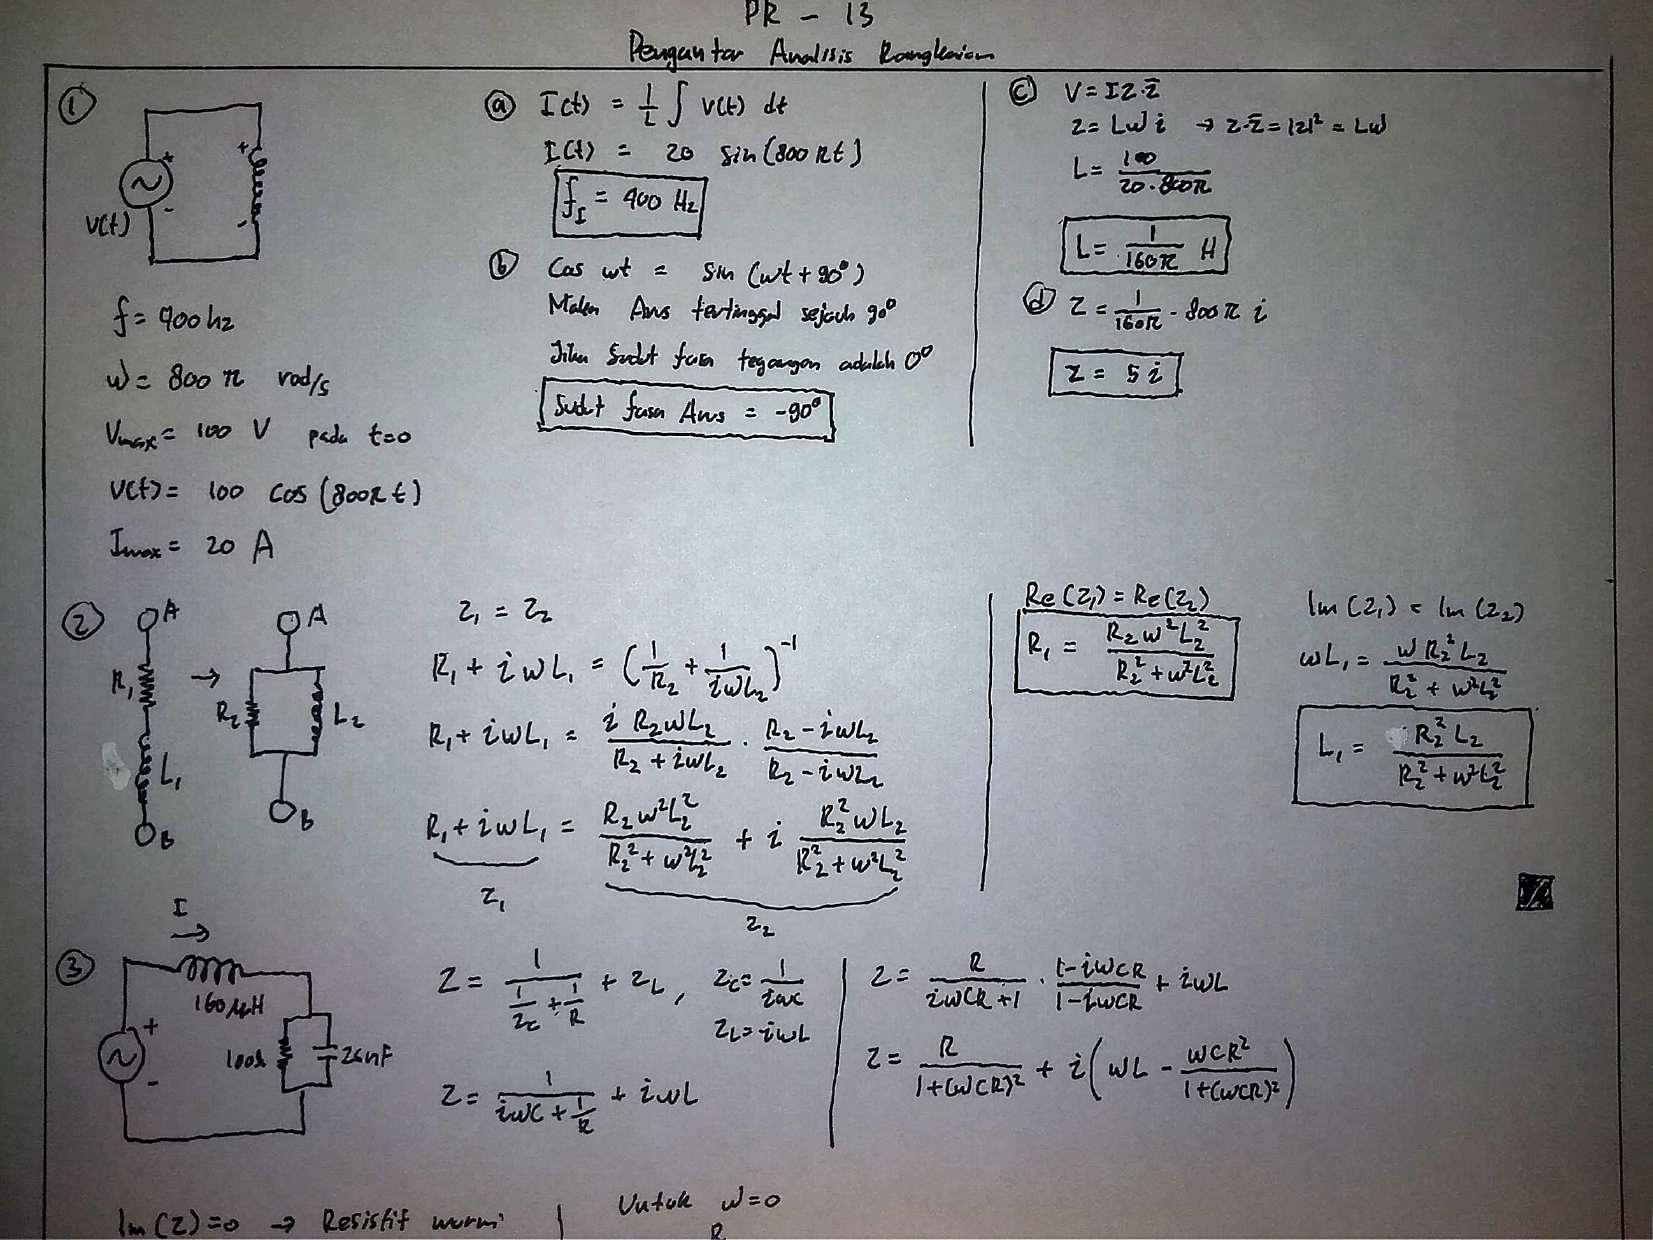 PR - 13
Pengantar Analisis Rangkaian
①
V(t)
+
-
+
-
f = 400 hz
ω = 800 π rad/s
Vmax = 100 V pada t=0
V(t) = 100 cos (800π t)
Imax = 20 A
ⓐ I(t) = 1/L ∫ V(t) dt
I(t) = 20 sin (800 π t)
f_I = 400 Hz
ⓑ Cos ωt = sin (ωt + 90°)
Maka Arus tertinggal sejauh 90°
Jika Sudut fasa tegangan adalah 0°
Sudut fasa Arus = -90°
ⓒ V = I Z·Z̄
Z = Lω i → Z·Z̄ = |Z|² = Lω
L = 100 / 20·800π
L = 1/160π H
ⓓ Z = 1/160π · 800 π i
Z = 5 i
②
A
R₁
L₁
B
→
A
R₂
L₂
B
Z₁ = Z₂
R₁ + iωL₁ = (1/R₂ + 1/iωL₂)⁻¹
R₁ + iωL₁ = i R₂ωL₂ / R₂ + iωL₂ · R₂ - iωL₂ / R₂ - iωL₂
R₁ + iωL₁ = R₂ω²L₂² / R₂² + ω²L₂² + i R₂²ωL₂ / R₂² + ω²L₂²
Z₁
Z₂
Re(Z₁) = Re(Z₂)
R₁ = R₂ω²L₂² / R₂² + ω²L₂²
Im(Z₁) = Im(Z₂)
ωL₁ = ωR₂²L₂ / R₂² + ω²L₂²
L₁ = R₂²L₂ / R₂² + ω²L₂²
③
I
→
160 μH
+
-
100Ω
25nF
Z = 1 / 1/Zc + 1/R + Z_L, Zc = 1/iωC
Z_L = iωL
Z = 1 / iωC + 1/R + iωL
Z = R / iωCR + 1 · 1-iωCR / 1-iωCR + iωL
Z = R / 1+(ωCR)² + i(ωL - ωCR² / 1+(ωCR)²)
Im(Z) = 0 → Resistif murni
Untuk ω=0
R